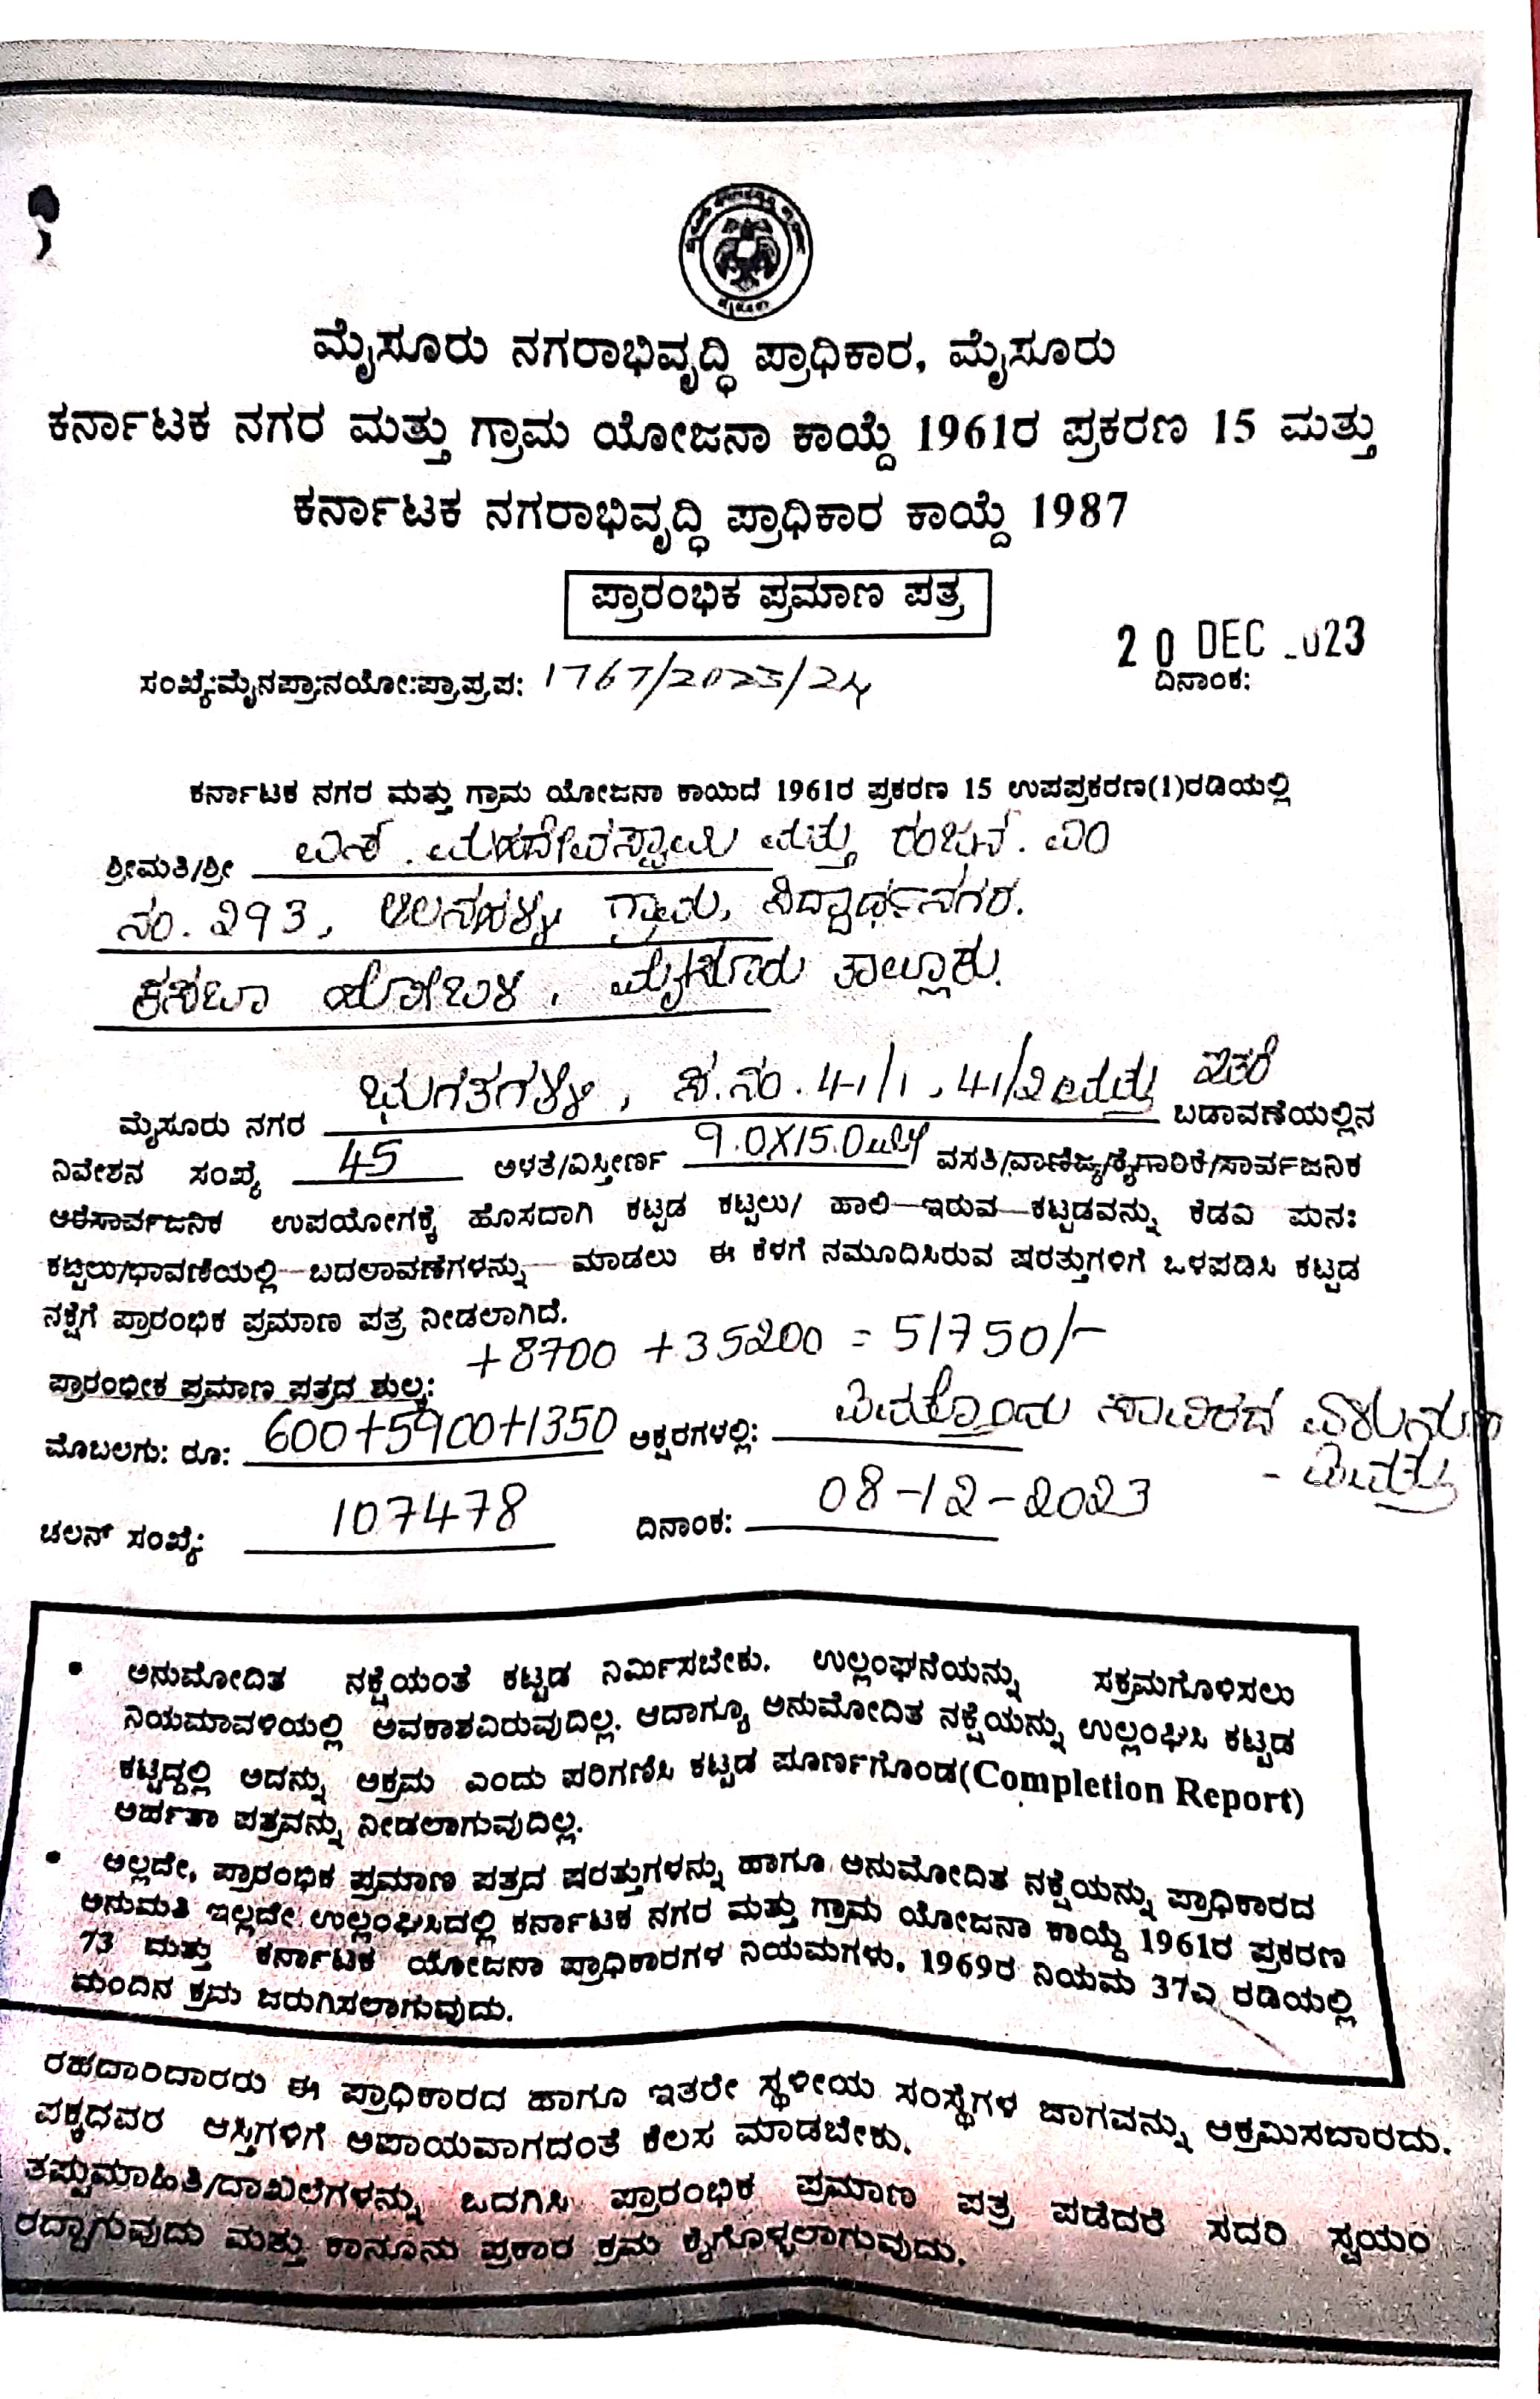 ಮೈಸೂರು ನಗರಾಭಿವೃದ್ಧಿ ಪ್ರಾಧಿಕಾರ, ಮೈಸೂರು
ಕರ್ನಾಟಕ ನಗರ ಮತ್ತು ಗ್ರಾಮ ಯೋಜನಾ ಕಾಯ್ದೆ 1961ರ ಪ್ರಕರಣ 15 ಮತ್ತು
ಕರ್ನಾಟಕ ನಗರಾಭಿವೃದ್ಧಿ ಪ್ರಾಧಿಕಾರ ಕಾಯ್ದೆ 1987
ಪ್ರಾರಂಭಿಕ ಪ್ರಮಾಣ ಪತ್ರ
20 DEC 2023
ಸಂಖ್ಯೆ:ಮೈನಪ್ರಾ:ನಯೋ:ಪ್ರಾಪ್ರಪ: 1767/2023/24 ದಿನಾಂಕ:
ಕರ್ನಾಟಕ ನಗರ ಮತ್ತು ಗ್ರಾಮ ಯೋಜನಾ ಕಾಯಿದೆ 1961ರ ಪ್ರಕರಣ 15 ಉಪಪ್ರಕರಣ(1)ರಡಿಯಲ್ಲಿ
ಶ್ರೀಮತಿ/ಶ್ರೀ ಎಸ್. ಮಹದೇವಸ್ವಾಮಿ ಮತ್ತು ರಂಜನ್. ಎಂ
ನಂ. 293, ಆಲನಹಳ್ಳಿ ಗ್ರಾಮ, ಸಿದ್ಧಾರ್ಥನಗರ.
ಕಸಬಾ ಹೋಬಳಿ, ಮೈಸೂರು ತಾಲ್ಲೂಕು.
ಮೈಸೂರು ನಗರ ಭುಗತಗಳ್ಳಿ, ಸ.ನಂ. 41/1, 41/2 ಮತ್ತು ಇತರೆ ಬಡಾವಣೆಯಲ್ಲಿನ
ನಿವೇಶನ ಸಂಖ್ಯೆ 45 ಅಳತೆ/ವಿಸ್ತೀರ್ಣ 9.0X15.0 ವಸತಿ/ವಾಣಿಜ್ಯ/ಕೈಗಾರಿಕೆ/ಸಾರ್ವಜನಿಕ
ಅರೆಸಾರ್ವಜನಿಕ ಉಪಯೋಗಕ್ಕೆ ಹೊಸದಾಗಿ ಕಟ್ಟಡ ಕಟ್ಟಲು/ ಹಾಲಿ ಇರುವ ಕಟ್ಟಡವನ್ನು ಕೆಡವಿ ಪುನಃ
ಕಟ್ಟಲು/ಛಾವಣಿಯಲ್ಲಿ ಬದಲಾವಣೆಗಳನ್ನು ಮಾಡಲು ಈ ಕೆಳಗೆ ನಮೂದಿಸಿರುವ ಷರತ್ತುಗಳಿಗೆ ಒಳಪಡಿಸಿ ಕಟ್ಟಡ
ನಕ್ಷೆಗೆ ಪ್ರಾರಂಭಿಕ ಪ್ರಮಾಣ ಪತ್ರ ನೀಡಲಾಗಿದೆ.
+8700 +35200 = 51750/-
ಪ್ರಾರಂಭೀಕ ಪ್ರಮಾಣ ಪತ್ರದ ಶುಲ್ಕ:
ಮೊಬಲಗು: ರೂ: 600+5900+1350 ಅಕ್ಷರಗಳಲ್ಲಿ: ಐವತ್ತೊಂದು ಸಾವಿರದ ಏಳುನೂರ
- ಐವತ್ತು
ಚಲನ್ ಸಂಖ್ಯೆ: 107478 ದಿನಾಂಕ: 08-12-2023
• ಅನುಮೋದಿತ ನಕ್ಷೆಯಂತೆ ಕಟ್ಟಡ ನಿರ್ಮಿಸಬೇಕು. ಉಲ್ಲಂಘನೆಯನ್ನು ಸಕ್ರಮಗೊಳಿಸಲು
ನಿಯಮಾವಳಿಯಲ್ಲಿ ಅವಕಾಶವಿರುವುದಿಲ್ಲ. ಆದಾಗ್ಯೂ ಅನುಮೋದಿತ ನಕ್ಷೆಯನ್ನು ಉಲ್ಲಂಘಿಸಿ ಕಟ್ಟಡ
ಕಟ್ಟಿದ್ದಲ್ಲಿ ಅದನ್ನು ಅಕ್ರಮ ಎಂದು ಪರಿಗಣಿಸಿ ಕಟ್ಟಡ ಪೂರ್ಣಗೊಂಡ(Completion Report)
ಅರ್ಹತಾ ಪತ್ರವನ್ನು ನೀಡಲಾಗುವುದಿಲ್ಲ.
• ಅಲ್ಲದೇ, ಪ್ರಾರಂಭಿಕ ಪ್ರಮಾಣ ಪತ್ರದ ಷರತ್ತುಗಳನ್ನು ಹಾಗೂ ಅನುಮೋದಿತ ನಕ್ಷೆಯನ್ನು ಪ್ರಾಧಿಕಾರದ
ಅನುಮತಿ ಇಲ್ಲದೇ ಉಲ್ಲಂಘಿಸಿದಲ್ಲಿ ಕರ್ನಾಟಕ ನಗರ ಮತ್ತು ಗ್ರಾಮ ಯೋಜನಾ ಕಾಯ್ದೆ 1961ರ ಪ್ರಕರಣ
73 ಮತ್ತು ಕರ್ನಾಟಕ ಯೋಜನಾ ಪ್ರಾಧಿಕಾರಗಳ ನಿಯಮಗಳು, 1969ರ ನಿಯಮ 37ಎ ರಡಿಯಲ್ಲಿ
ಮುಂದಿನ ಕ್ರಮ ಜರುಗಿಸಲಾಗುವುದು.
ರಹದಾರಿದಾರರು ಈ ಪ್ರಾಧಿಕಾರದ ಹಾಗೂ ಇತರೇ ಸ್ಥಳೀಯ ಸಂಸ್ಥೆಗಳ ಜಾಗವನ್ನು ಆಕ್ರಮಿಸಬಾರದು.
ಪಕ್ಕದವರ ಆಸ್ತಿಗಳಿಗೆ ಅಪಾಯವಾಗದಂತೆ ಕೆಲಸ ಮಾಡಬೇಕು.
ತಪ್ಪುಮಾಹಿತಿ/ದಾಖಲೆಗಳನ್ನು ಒದಗಿಸಿ ಪ್ರಾರಂಭಿಕ ಪ್ರಮಾಣ ಪತ್ರ ಪಡೆದರೆ ಸದರಿ ಸ್ವಯಂ
ರದ್ದಾಗುವುದು ಮತ್ತು ಕಾನೂನು ಪ್ರಕಾರ ಕ್ರಮ ಕೈಗೊಳ್ಳಲಾಗುವುದು.